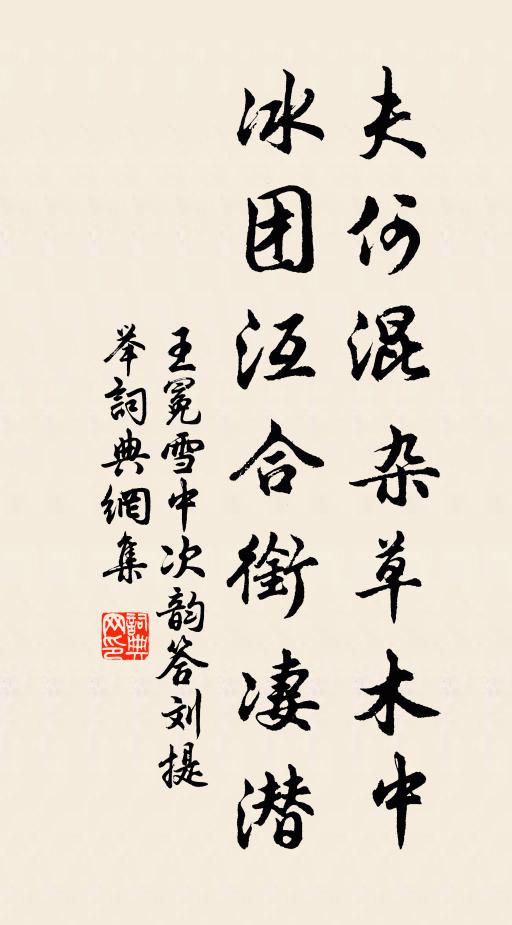 夫何混杂草木中
冰团沍合衔凄潜
王冕雪中次韵答刘提
举詞典網集
詞典网印